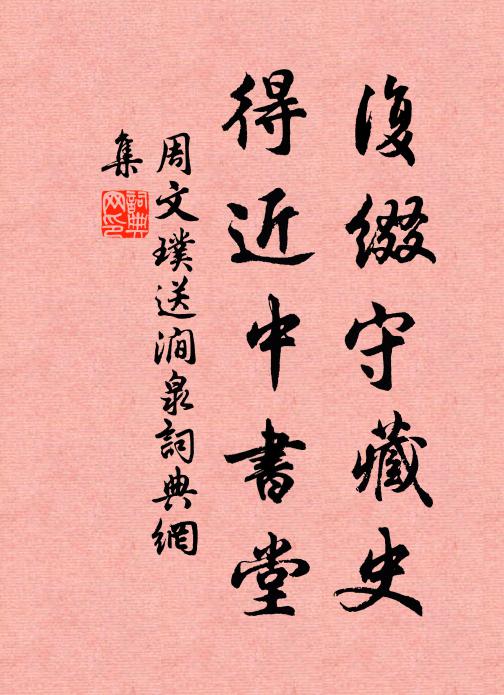 復綴守藏史
得近中書堂
周文璞送澗泉詞典網
集
詞典網印